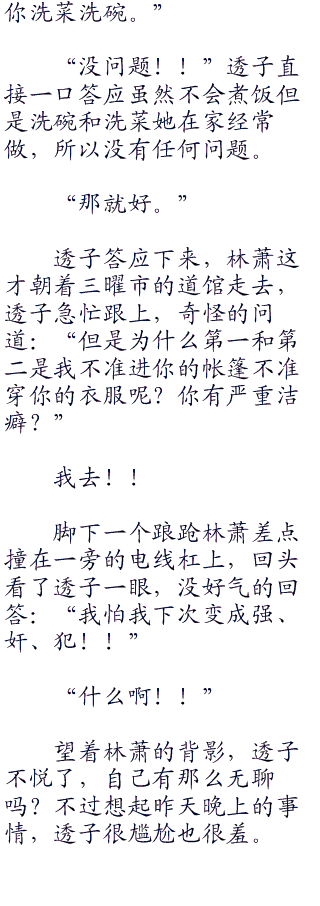 你洗菜洗碗。”
“没问题！！”透子直
接一口答应虽然不会煮饭但
是洗碗和洗菜她在家经常
做，所以没有任何问题。
“那就好。”
透子答应下来，林萧这
才朝着三曜市的道馆走去，
透子急忙跟上，奇怪的问
道：“但是为什么第一和第
二是我不准进你的帐篷不准
穿你的衣服呢？你有严重洁
癖？”
我去！！
脚下一个踉跄林萧差点
撞在一旁的电线杠上，回头
看了透子一眼，没好气的回
答：“我怕我下次变成强、
奸、犯！！”
“什么啊！！”
望着林萧的背影，透子
不悦了，自己有那么无聊
吗？不过想起昨天晚上的事
情，透子很尴尬也很羞。